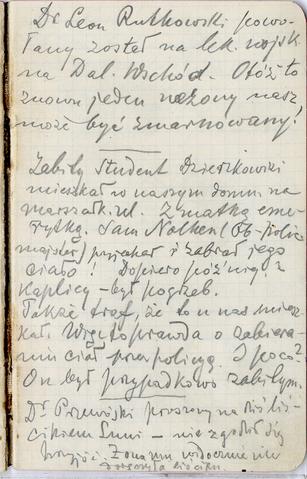 Dr Leon Rutkowski powo-
łany został na lek. wojsk
na Dal. Wschód. Otóż to
znowu jeden uczony nasz
może być zmarnowany!
Zabity student Dzierzkowski
mieszkał w naszym domu na
marszałk. ul. Z matką eme-
rytką. Sam Nolken (Ob-polic
majster) przyjechał i zabrał jego
ciało! Dopiero później z
kaplicy – był pogrzeb.
Także traf, że to u nas miesz-
kał. Więc to prawda o zabiera-
niu ciał przez policyą. I poco?
On był przypadkowo zabitym
Dr Przewóski proszony na
– nie zgodził się
przyjść. Żona mu widocznie